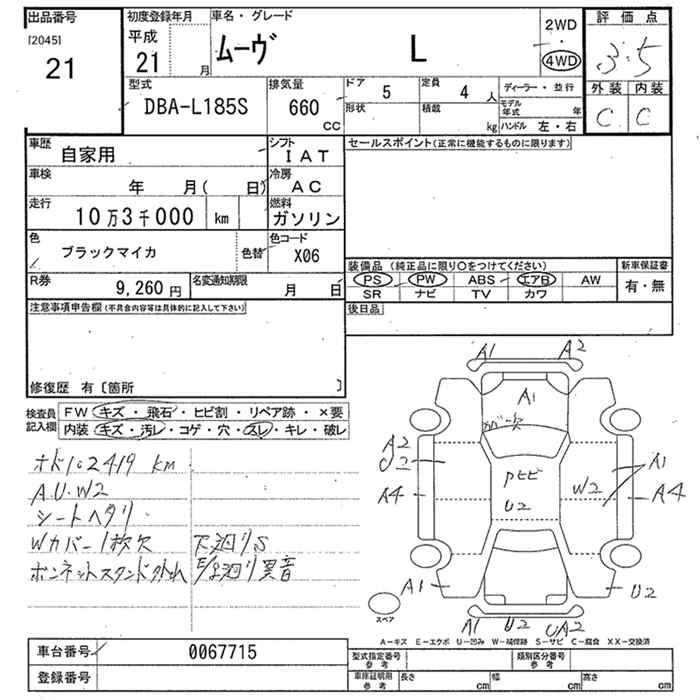 出品番号
[2045]
21
初度登録年月
平成
21 月
車名・グレード
ムーヴ L
2WD
・
4WD
評価点
3.5
外装 内装
C C
型式
DBA-L185S
排気量
660
CC
ドア 5
形状
定員 4 人
積載 kg
ディーラー・並行
モデル年式 年
ハンドル 左・右
車歴
自家用
シフト
IAT
車検
年 月( 日)
冷房
AC
走行
10万3千000 km
燃料
ガソリン
色
ブラックマイカ
色替
色コード
X06
R券
9,260 円
名変通知期限
月 日
セールスポイント(正常に機能するものに限ります)
装備品 (純正品に限り○をつけてください)
新車保証書
PS PW ABS エアB AW
SR ナビ TV カワ
有・無
後日品
注意事項申告欄(不具合内容等は具体的に記入して下さい)
修復歴 有〔箇所 〕
検査員
記入欄
FW キズ・飛石・ヒビ割・リペア跡・×要
内装 キズ・汚レ・コゲ・穴・スレ・キレ・破レ
オド102419 km
A.U.W2
シートヘタリ
Wカバー1枚欠 下廻りS
ボンネットスタンド外れ 廻り異音
A1 A2
A1
A2
U2
A4
Pヒビ
U2
W2
A1
A4
A1
U2
A1 U2 UA2
スペア
A-キズ E-エクボ U-凹み W-補修跡 S-サビ C-腐食 XX-交換済
車台番号
0067715
登録番号
型式指定番号
参考
類別区分番号
参考
車庫証明用
参考
長さ cm 幅 cm 高さ cm